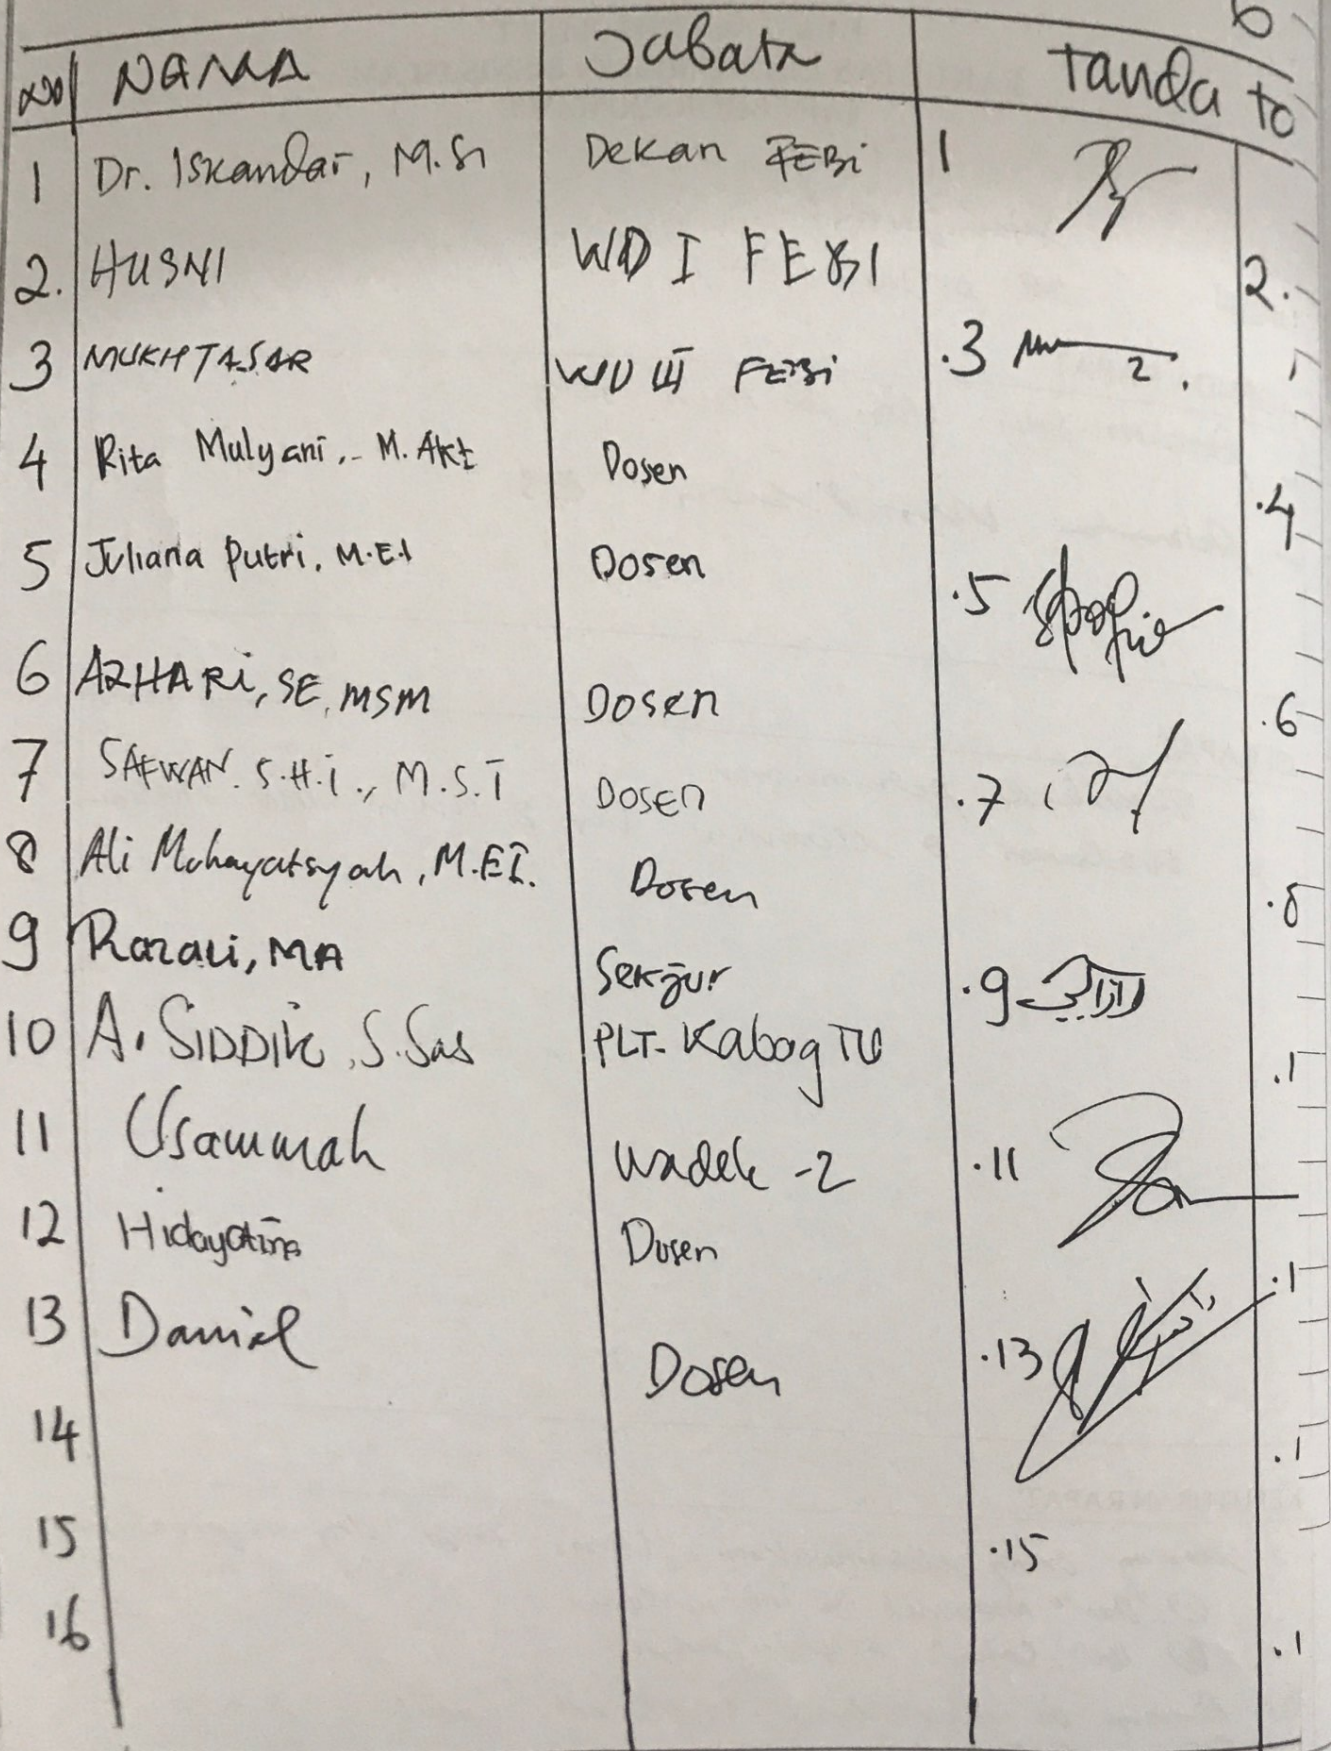 No NAMA Jabata Tanda ta
1 Dr. Iskandar, M.Si Dekan FEBi 1
2. HUSNI WD I FEBI 2.
3 MUKHTASAR WD III FEBi .3
4 Rita Mulyani,. M. Akt Dosen .4
5 Juliana Putri, M.E.I Dosen .5
6 AZHARi, SE, MSM Dosen .6
7 SAFWAN. S.H.i., M.S.I Dosen .7
8 Ali Muhayatsyah, M.EI. Dosen .8
9 Razali, MA Sekjur .9
10 A. SIDDIK, S.Sas PLT. Kabag TU .1
11 Usammah Wadek -2 .11
12 Hidayatina Dosen .1
13 Danial Dosen .13
14 .1
15 .15
16 .1